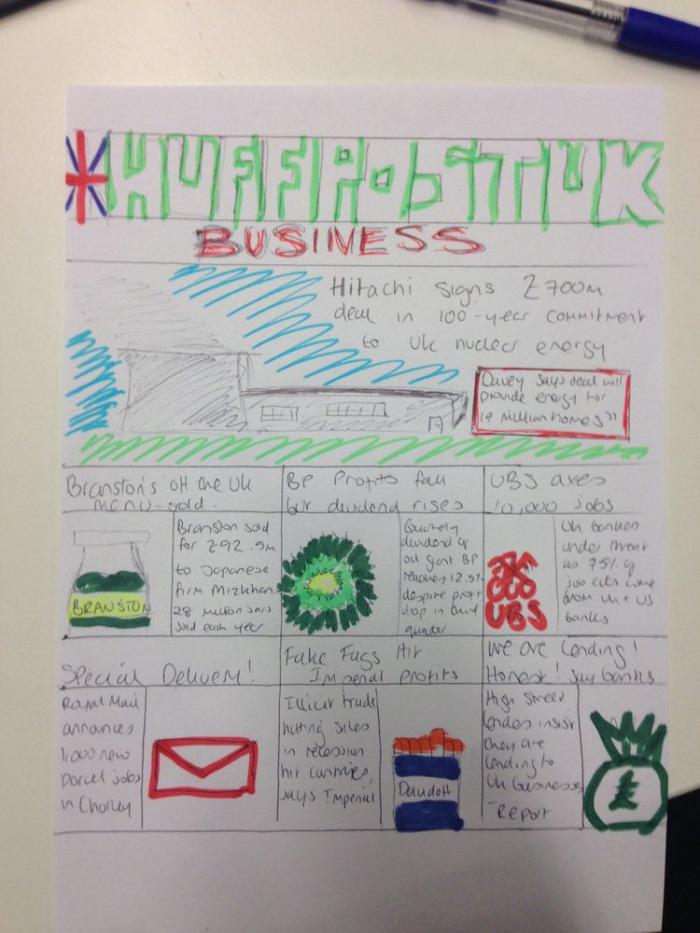 HUFFPOSTUK
BUSINESS
Hitachi signs £700m
deal in 100-year commitment
to UK nuclear energy
Davey says deal will
provide energy for
"14 million homes"
Branston's off the UK
menu - sold
Branston sold
for £92.5m
to Japanese
firm Mizkhan
28 million jars
sold each year
BRANSTON
BP Profits fall
but dividend rises
Quarterly
dividend of
oil giant BP
reaches 12.5%
despite profit
drop in third
quarter
UBS axes
10,000 jobs
UBS
UK bankers
under threat
as 75% of
job cuts come
from UK + US
banks
Special Delivery!
Royal Mail
announces
1,000 new
parcel jobs
in Chorley
Fake Fags Hit
Imperial profits
Illicit trade
hitting sales
in recession
hit countries,
says Imperial
Davidoff
We are Lending!
Honest! say banks
High Street
lenders insist
they are
lending to
UK businesses
- Report
£